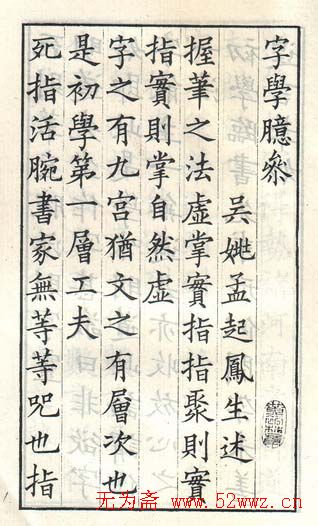 字學臆參
吳姚孟起鳳生述
握筆之法虛掌實指指聚則實
指實則掌自然虛
字之有九宮猶文之有層次也
是初學第一層工夫
死指活腕書家無等等咒也指
无为斋 www.52wwz.cn